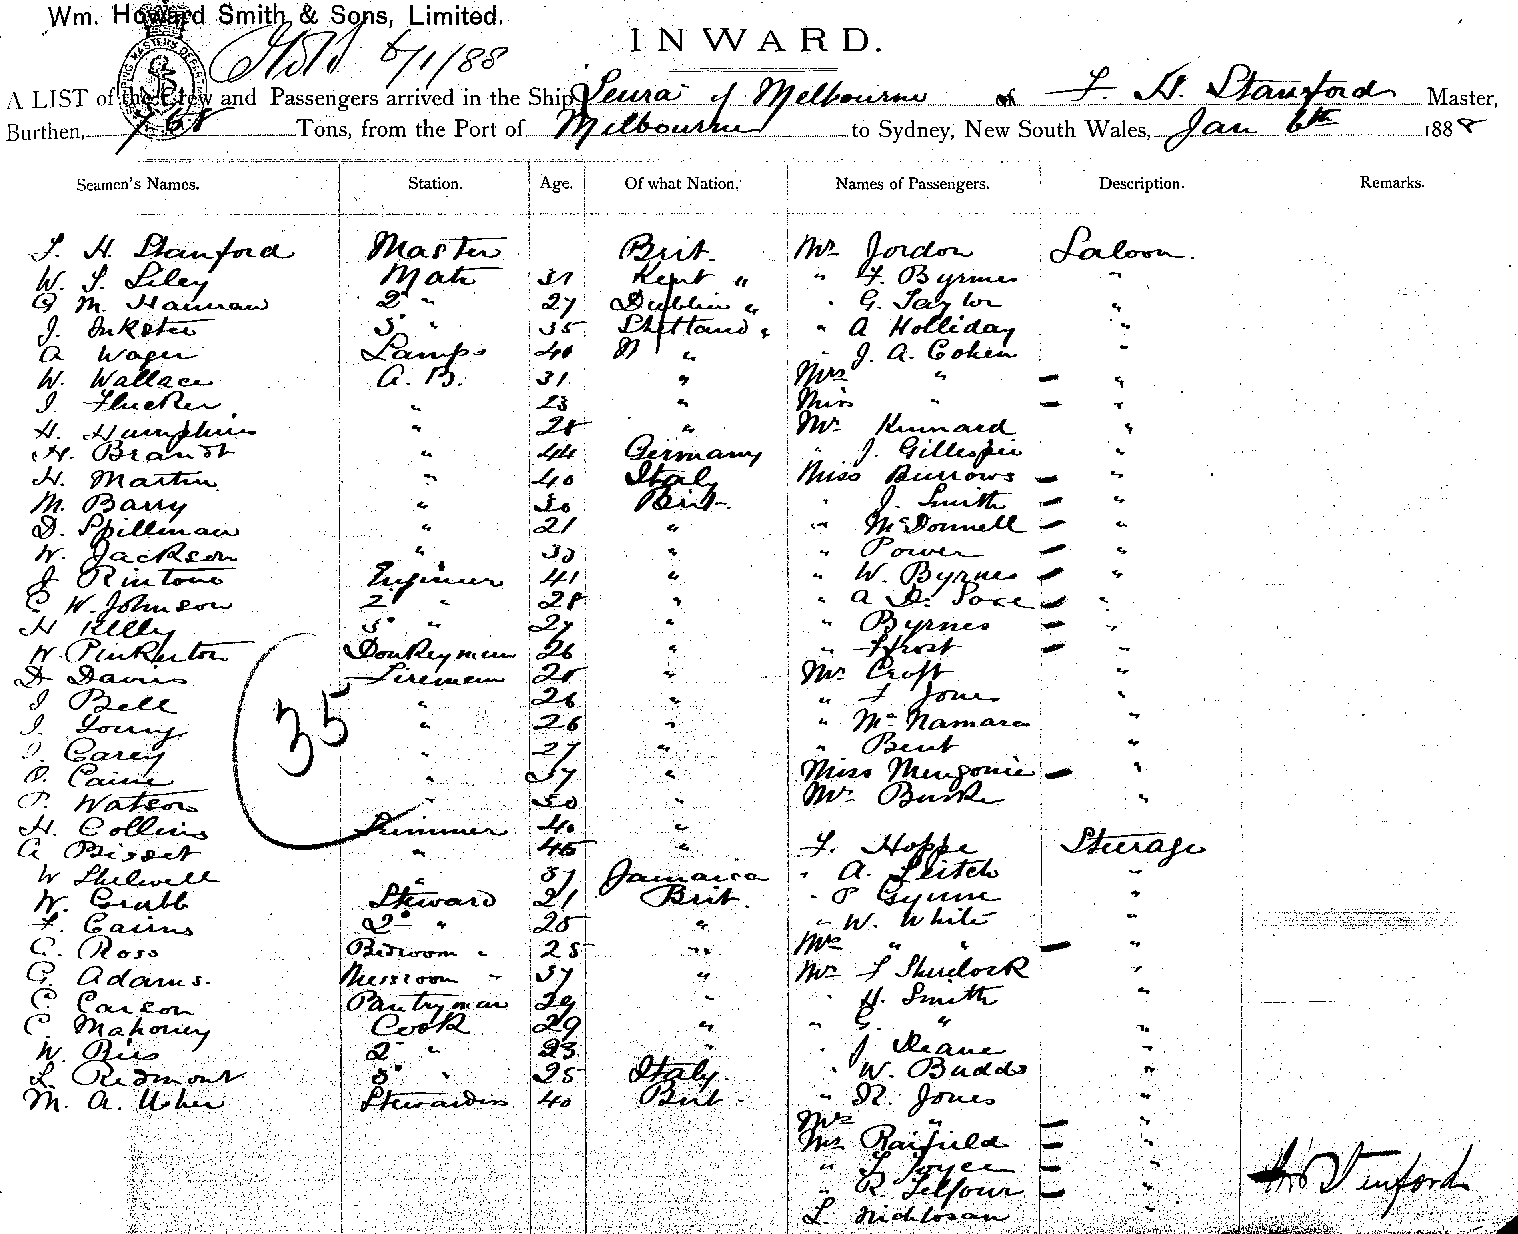 Wm. Howard Smith & Sons, Limited.
6/1/88
INWARD.
A LIST of the Crew and Passengers arrived in the Ship Leura of Melbourne of F. H. Stanford Master,
Burthen, 768 Tons, from the Port of Melbourne to Sydney, New South Wales, Jan 6th 1888
Seamen's Names. Station. Age. Of what Nation. Names of Passengers. Description. Remarks.
F. H. Stanford Master Brit. Mr Jordon Saloon.
W. S. Liley Mate 37 Kent " " F. Byrnes "
G M. Hannan 2d " 27 Dublin " " G. Taylor "
J. Inkster 3d " 35 Shetland " " A Holliday "
A Wager Lamps 40 " " J. A. Cohen "
W. Wallace A. B. 31 " Mrs " "
J. Flucker " 23 " Miss " "
H. Humphries " 28 " Mr Kinnard "
H. Brandt " 44 Germany " J. Gillespie "
H. Martin " 40 Italy Miss Burrows "
M. Barry " 30 Brit. " J. Smith "
D. Spillman " 21 " " McDonnell "
W. Jackson " 33 " " Power "
J Rintoul Engineer 41 " " W. Byrnes "
C W. Johnson 2 " 28 " " A D. "
H Kelly 3d " 27 " " Byrnes "
W. Pinkerton Donkeyman 26 " " Frost "
D Davies Fireman 28 " Mr Croft "
J Bell " 26 " " F Jones "
J. Young " 26 " " McNamara "
J. Carey " 27 " " Bent "
P. Caine " 37 " Miss "
P. Watson " 30 " Mr Burke "
35
H. Collins Trimmer 40 "
A Bisset " 45 " F. Hoppe Steerage
W Shelwell " 37 Jamaica " A. Leitch "
W. Crabb Steward 21 Brit. " P Gynne "
F. Cairns 2d " 25 " " W. White "
C. Ross Bedroom " 25 " Mrs " " "
G. Adams. Messroom " 37 " Mr F Shurlock "
C Carson Pantryman 29 " " H. Smith "
C. Mahoney Cook 29 " " G. " "
W. Ries 2d " 23 " " J Deane "
L. Redmont 3d " 25 Italy. " W. Budds "
M. A. Usher Stewardess 40 Brit. " R. Jones "
Mrs " "
Mrs Raifield "
" L Joyce "
" R. Telfour "
L. Nicholson "
F H Stanford